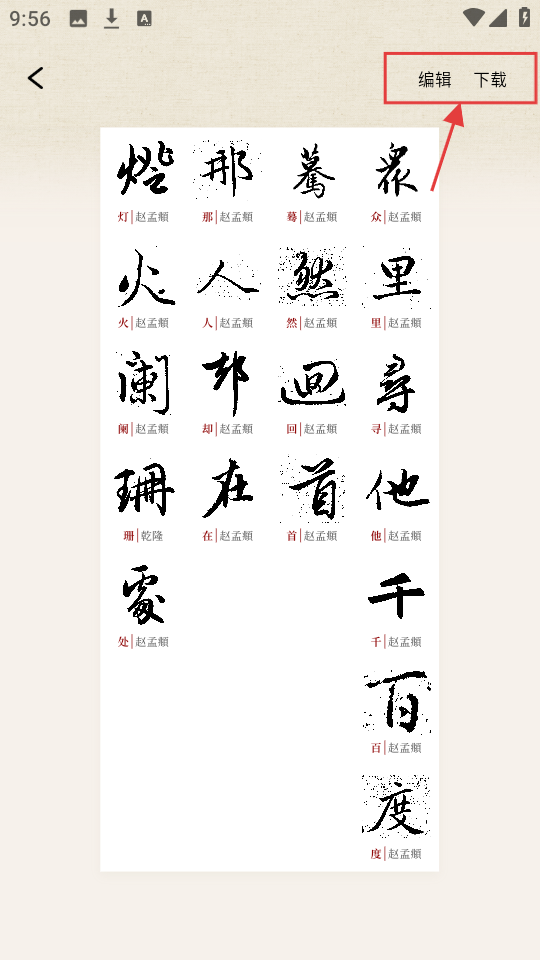 9:56
A
编辑 下载
燈 那 驀 衆
灯|赵孟頫 那|赵孟頫 蓦|赵孟頫 众|赵孟頫
火 人 然 里
火|赵孟頫 人|赵孟頫 然|赵孟頫 里|赵孟頫
阑 却 回 尋
阑|赵孟頫 却|赵孟頫 回|赵孟頫 寻|赵孟頫
珊 在 首 他
珊|乾隆 在|赵孟頫 首|赵孟頫 他|赵孟頫
處 千
处|赵孟頫 千|赵孟頫
百
百|赵孟頫
度
度|赵孟頫